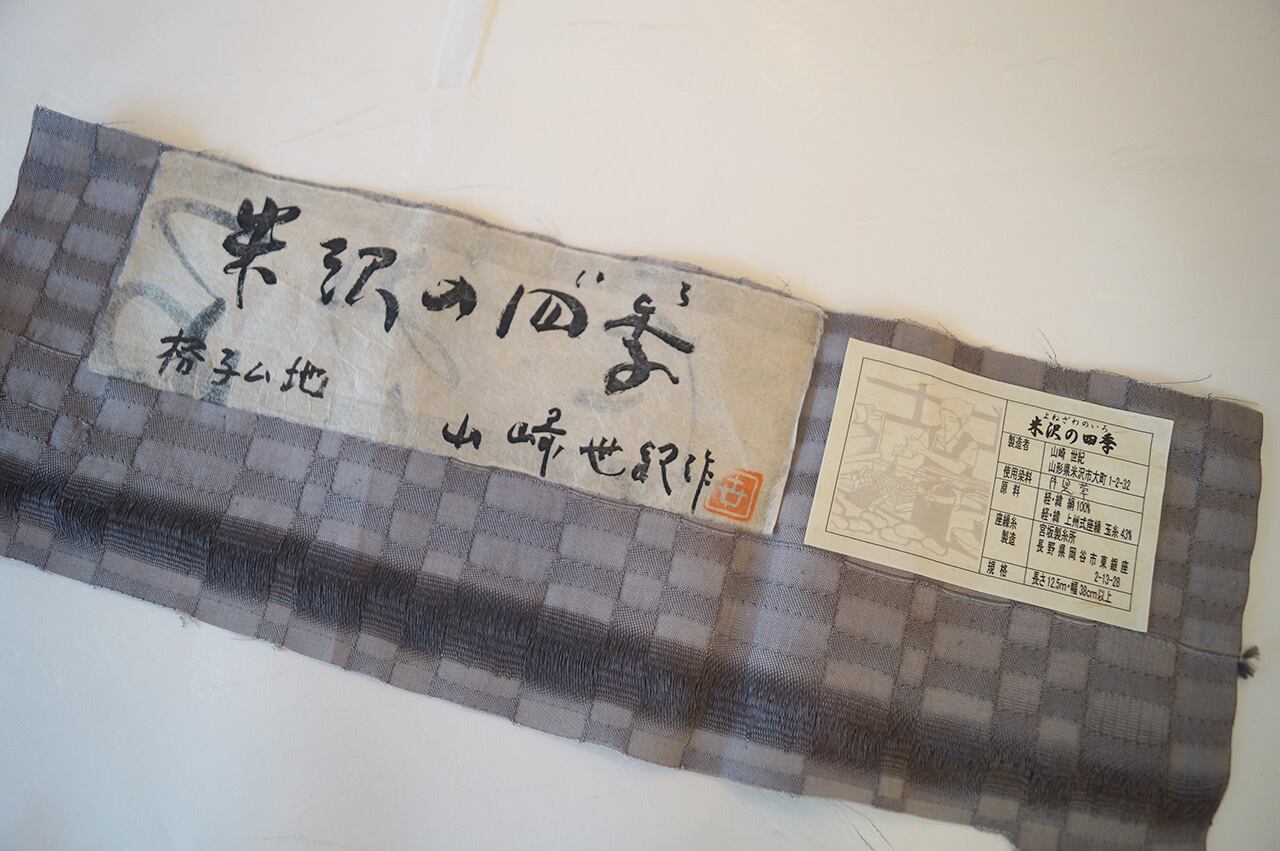 米沢の四季
格子ム地
山崎世紀作
世
よねざわのいろ
米沢の四季
製造者 山崎 世紀
山形県米沢市大町1-2-32
使用染料
原料 経・緯 絹100%
経・緯 上州式座繰 玉糸43%
座繰糸製造 宮坂製糸所
長野県岡谷市東銀座
2-13-28
規格 長さ12.5m・幅38cm以上